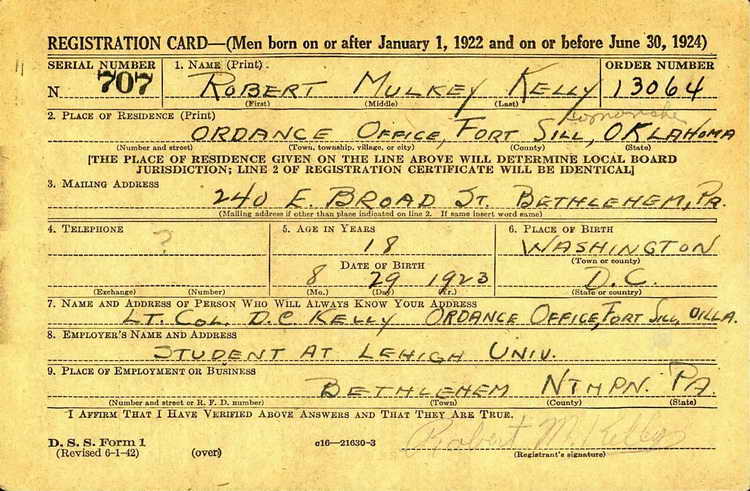 REGISTRATION CARD—(Men born on or after January 1, 1922 and on or before June 30, 1924)
SERIAL NUMBER 1. NAME (Print) ORDER NUMBER
N 707 ROBERT MULKEY KELLY 13064
(First) (Middle) (Last)
2. PLACE OF RESIDENCE (Print)
ORDANCE OFFICE, FORT SILL, OKLAHOMA
(Number and street) (Town, township, village, or city) (County) (State)
[THE PLACE OF RESIDENCE GIVEN ON THE LINE ABOVE WILL DETERMINE LOCAL BOARD
JURISDICTION; LINE 2 OF REGISTRATION CERTIFICATE WILL BE IDENTICAL]
3. MAILING ADDRESS
240 E. BROAD ST. BETHLEHEM, PA.
(Mailing address if other than place indicated on line 2. If same insert word same)
4. TELEPHONE 5. AGE IN YEARS 6. PLACE OF BIRTH
? 18 WASHINGTON
(Town or county)
DATE OF BIRTH
8 29 1923 D.C.
(Exchange) (Number) (Mo.) (Day) (Yr.) (State or country)
7. NAME AND ADDRESS OF PERSON WHO WILL ALWAYS KNOW YOUR ADDRESS
LT. COL. D.C KELLY ORDANCE OFFICE, FORT SILL,
8. EMPLOYER'S NAME AND ADDRESS
STUDENT AT LEHIGH UNIV.
9. PLACE OF EMPLOYMENT OR BUSINESS
BETHLEHEM NTHPN. PA
(Number and street or R. F. D. number) (Town) (County) (State)
I AFFIRM THAT I HAVE VERIFIED ABOVE ANSWERS AND THAT THEY ARE TRUE.
D. S. S. Form 1
(Revised 6-1-42) (over) c16—21630-3
Robert M. Kelly
(Registrant's signature)